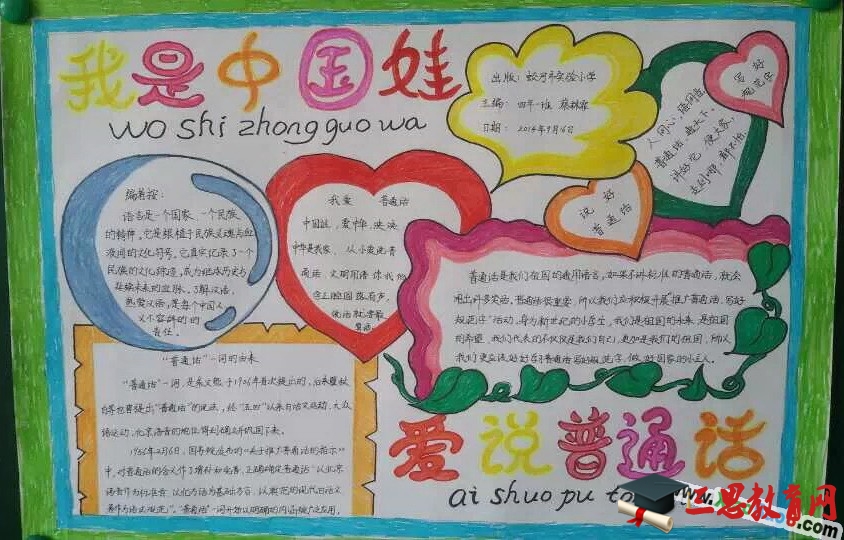 我是中国娃
wo shi zhong guo wa
出版：蛟河市实验小学
主编：四年一班
日期：2014年9月16日
写好
规范字
人同心，
普通话，走天下。
讲好它，便大家，
走到哪，都不怕。
说好
普通话
编者按：
语言是一个国家、一个民族
的精神，它是根植于民族灵魂与血
液间的文化符号。它真实记录了一个
民族的文化踪迹，成为继承历史与
延续未来的血脉。了解汉语，
热爱汉语，是每个中国人
义不容辞的
责任。
我爱 普通话
中国娃，爱中华，泱泱
中华是我家，从小爱说普
通话，文明用语
说话就要最
普通话是我们祖国的通用语言，如果不讲标准的普通话，就会
闹出许多笑话，普通话很重要，所以我们应积极开展推广普通话、写好
规范字"活动。身为新世纪的小学生，我们是祖国的未来，是祖国
的希望，我们代表的不仅仅是我们自己，更加是我们的祖国，所以
我们更应该好好学习普通话写好规范字，做好国家的小主人。
"普通话"一词的由来
"普通话"一词，是朱文熊于1906年首次提出的，后来瞿秋
白等也曾提出"普通话"的说法，经"五四"以来白话文运动、大众
语运动，北京语音的地位得到确立并巩固下来。
1956年2月6日，国务院发布的《关于推广普通话的指示》
中，对普通话的含义作了增补和完善，正式确定普通话"以北京
语音作为标准音，以北方话为基础方言，以典范的现代白话文
著作为语法规范"。"普通话"一词开始以明确的内涵被广泛应用。
爱说普通话
ai shuo pu to
三思教育网